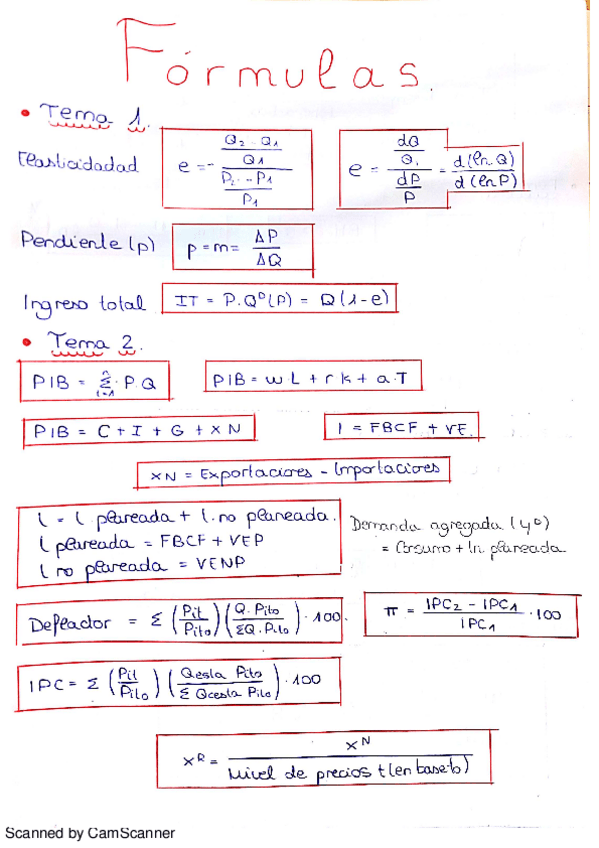 Fórmulas.
• Tema 1.
Elasticidadad e = - ((Q2 - Q1)/Q1)/((P2 - P1)/P1) e = (dQ/Q)/(dP/P) = d(ln Q)/d(ln P)
Pendiente (p) p = m = ΔP/ΔQ
Ingreso total IT = P.Qᴰ(P) = Q(1-e)
• Tema 2.
PIB = Σⁿᵢ₌₁ · P.Q PIB = wL + rk + a.T
PIB = C + I + G + XN I = FBCF + VE.
XN = Exportaciones - Importaciones
I = I planeada + I. no planeada.
I planeada = FBCF + VEP
I no planeada = VENP
Demanda agregada (yᴰ)
= Consumo + In. planeada
Deflador = Σ (Pit/Pito)(Q.Pito/ΣQ.Pito) · 100 π = (IPC2 - IPC1)/IPC1 · 100
IPC = Σ (Pit/Pito)(Qcesta Pito/Σ Qcesta Pito) · 100
xᴿ = xᴺ/Nivel de precios t(en base to)
Scanned by CamScanner